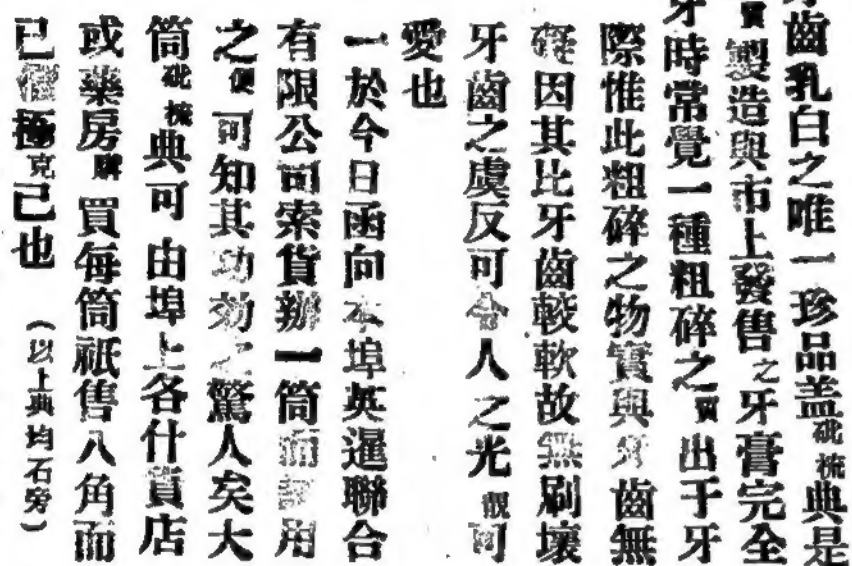 牙齒乳白之唯一珍品盖砒梳典是
質製造與市上發售之牙膏完全
牙時常覺一種粗碎之質出于牙
際惟此粗碎之物實與牙齒無
礙因其比牙齒較軟故無刷壞
牙齒之虞反可令人之光觀可
愛也
一於今日函向本埠英暹聯合
有限公司索貨辦一筒而試用
之便可知其功効之驚人矣大
筒砒梳典可由埠上各什貨店
或藥房購買每筒祇售八角而
已極克己也
（以上典均石旁）